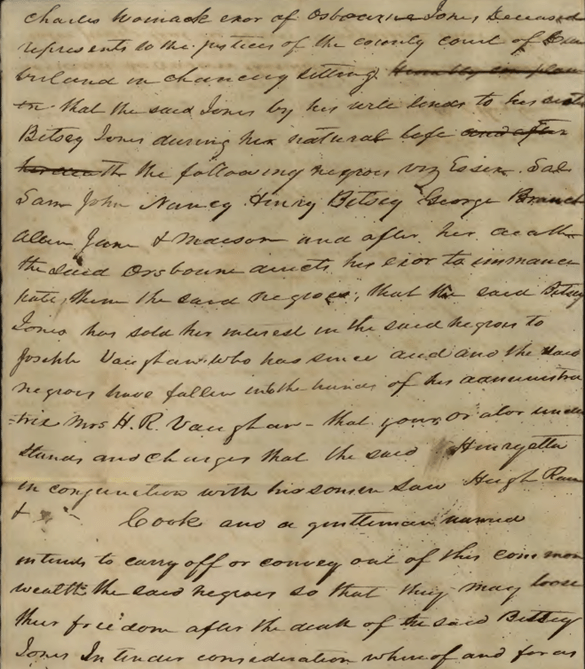 Charles Womack exor of Osbourne Jones Deceased
represents to the justices of the county court of Cum
berland in chancery sitting
that the said Jones by his will lends to his
Betsey Jones during her natural life and after
the following negroes viz Essex Sall
Sam John Nancy Henry Betsey George Branch
Jane & Madison and after her death
the said Orsbourne directs his exor to immance
pate them the said negroes, that the said Betsey
Jones has sold her interest in the said negroes to
Joseph Vaughan who has since and and the said
negroes have fallen into the hands of his administra
=trix Mrs H. R. Vaughan - that your orator under
stands and charges that the said Henryetta
in conjunction with his son in law Hugh
& Cook and a gentleman named
intends to carry off or convey out of this common
wealth the said negroes so that they may loose
their freedom after the death of the said Betsey
Jones In tender consideration whereof and for as